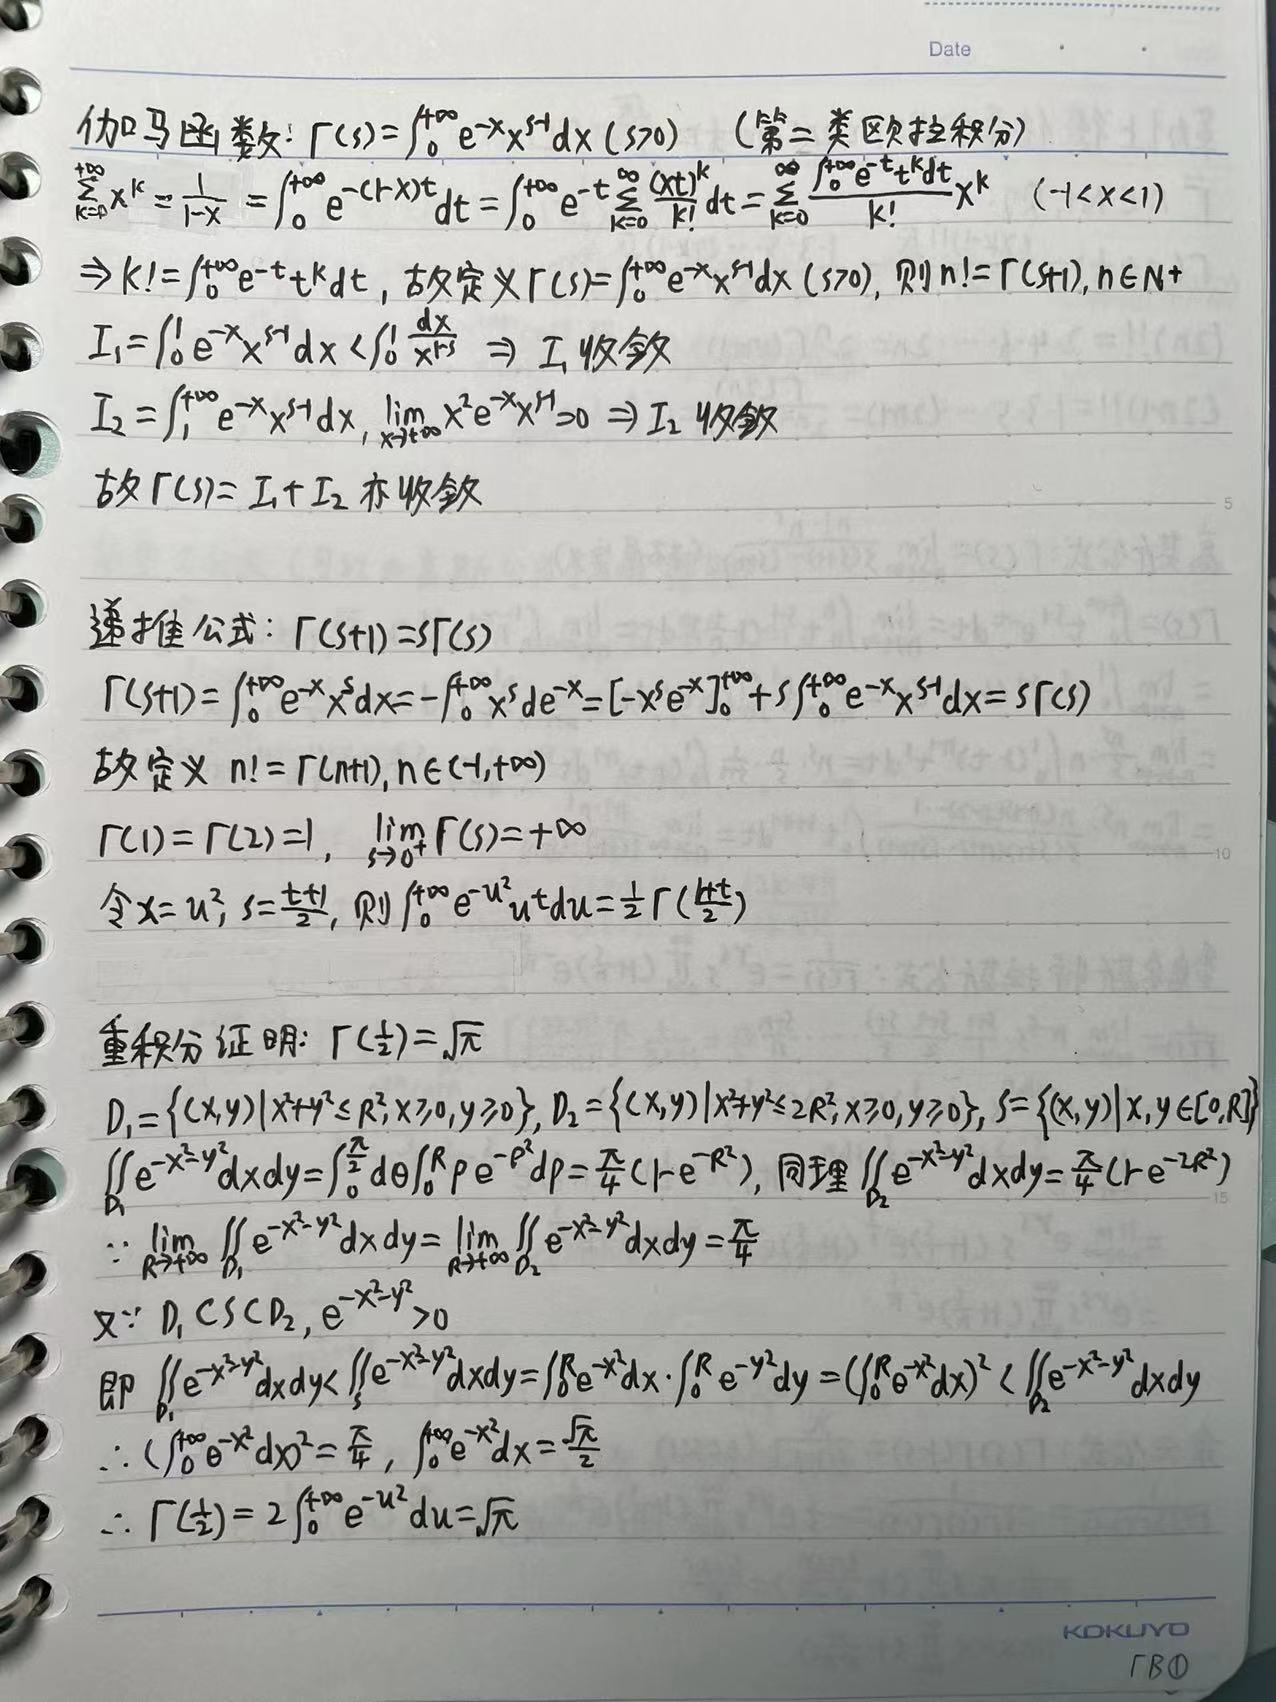 Date
伽马函数: Γ(s)=∫₀^{+∞} e^{-x}x^{s-1}dx (s>0) (第二类欧拉积分)
∑_{k=0}^{+∞} x^k = 1/(1-x) = ∫₀^{+∞} e^{-(1-x)t}dt = ∫₀^{+∞} e^{-t} ∑_{k=0}^{∞} (xt)^k/k! dt = ∑_{k=0}^{∞} (∫₀^{+∞} e^{-t}t^k dt)/k! x^k (-1<x<1)
⇒ k! = ∫₀^{+∞} e^{-t}t^k dt, 故定义Γ(s)=∫₀^{+∞} e^{-x}x^{s-1}dx (s>0), 则n!=Γ(s+1), n∈N+
I₁=∫₀¹ e^{-x}x^{s-1}dx < ∫₀¹ dx/x^{1-s} ⇒ I₁收敛
I₂=∫₁^{+∞} e^{-x}x^{s-1}dx, lim_{x→+∞} x²e^{-x}x^{s-1}=0 ⇒ I₂ 收敛
故Γ(s)= I₁+I₂ 亦收敛
5
递推公式: Γ(s+1)=sΓ(s)
Γ(s+1)=∫₀^{+∞} e^{-x}x^s dx = -∫₀^{+∞} x^s de^{-x} = [-x^s e^{-x}]₀^{+∞} + s∫₀^{+∞} e^{-x}x^{s-1}dx = sΓ(s)
故定义 n!=Γ(n+1), n∈(-1,+∞)
Γ(1)=Γ(2)=1, lim_{s→0⁺} Γ(s)=+∞
10
令x=u², s=(t+1)/2, 则∫₀^{+∞} e^{-u²}u^t du = 1/2 Γ((1+t)/2)
重积分证明: Γ(1/2)=√π
D₁={(x,y)|x²+y²≤R²,x≥0,y≥0}, D₂={(x,y)|x²+y²≤2R²,x≥0,y≥0}, S={(x,y)|x,y∈[0,R]}
∬_{D₁} e^{-x²-y²}dxdy = ∫₀^{π/2} dθ∫₀^R ρe^{-ρ²}dρ = π/4 (1-e^{-R²}), 同理∬_{D₂} e^{-x²-y²}dxdy = π/4 (1-e^{-2R²})
15
∵ lim_{R→+∞} ∬_{D₁} e^{-x²-y²}dxdy = lim_{R→+∞} ∬_{D₂} e^{-x²-y²}dxdy = π/4
又∵ D₁⊂S⊂D₂, e^{-x²-y²}>0
即 ∬_{D₁} e^{-x²-y²}dxdy < ∬_S e^{-x²-y²}dxdy = ∫₀^R e^{-x²}dx·∫₀^R e^{-y²}dy = (∫₀^R e^{-x²}dx)² < ∬_{D₂} e^{-x²-y²}dxdy
∴ (∫₀^{+∞} e^{-x²}dx)² = π/4, ∫₀^{+∞} e^{-x²}dx = √π/2
∴ Γ(1/2) = 2∫₀^{+∞} e^{-u²}du = √π
KOKUYO
ΓB①